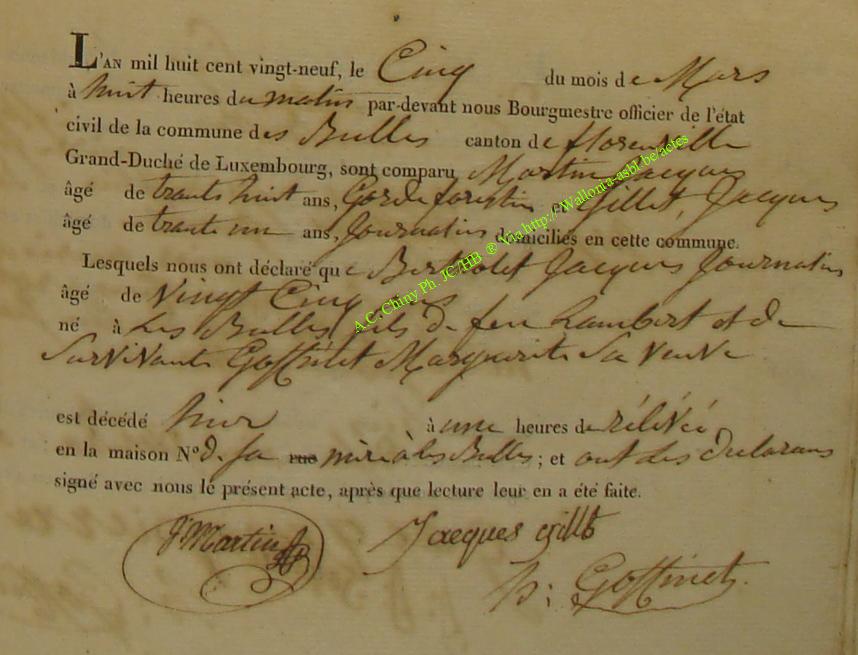 L'AN mil huit cent vingt-neuf, le Cinq du mois de Mars
à huit heures du matin par-devant nous Bourgmestre officier de l'état
civil de la commune des Bulles canton de florenville
Grand-Duché de Luxembourg, sont comparu Martin Jacques
âgé de trente huit ans, Garde forestier et Gillet, Jacques
âgé de trante un ans, Journalier domiciliés en cette commune.
Lesquels nous ont déclaré que Bertholet Jacques Journalier
âgé de Vingt Cinq ans
né à Les Bulles, fils de feu Lambert et de
Survivante Goffinet Marguerite Sa Veuve
est décédé hier à une heures de rélévée
en la maison N° de sa rue mère à les Bulles; et ont Les declarans
signé avec nous le présent acte, après que lecture leur en a été faite.
J Martin Jacques Gillet
Goffinet
A.C. Chiny Ph. JC/HB ® Via http://Wallonia-asbl.be/actes